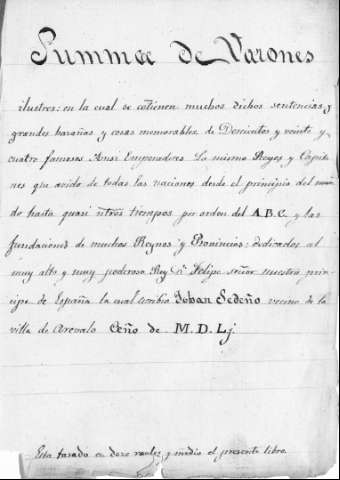 Summa de Varones
ilustres: en la cual se cotienen muchos dichos sentencias, y
grandes hazañas y cosas memorables de Doscientos y veinte y
cuatro famosos. Ansi Emperadores. Lo mismo Reyes y Capita
nes que avido de todas las naciones desde el principio del mun
do hasta quasi ntros tiempos por orden del A.B.C. y las
fundaciones de muchos Reynos y Provincias: dedicados al
muy alto y muy poderoso Rey Dn Felipe señor nuestro prin
cipe de España la cual scribio Johan Sedeño vecino de la
villa de Arevalo Año de M.D.Lj.
Esta tasado en doze reales y medio el presente libro.